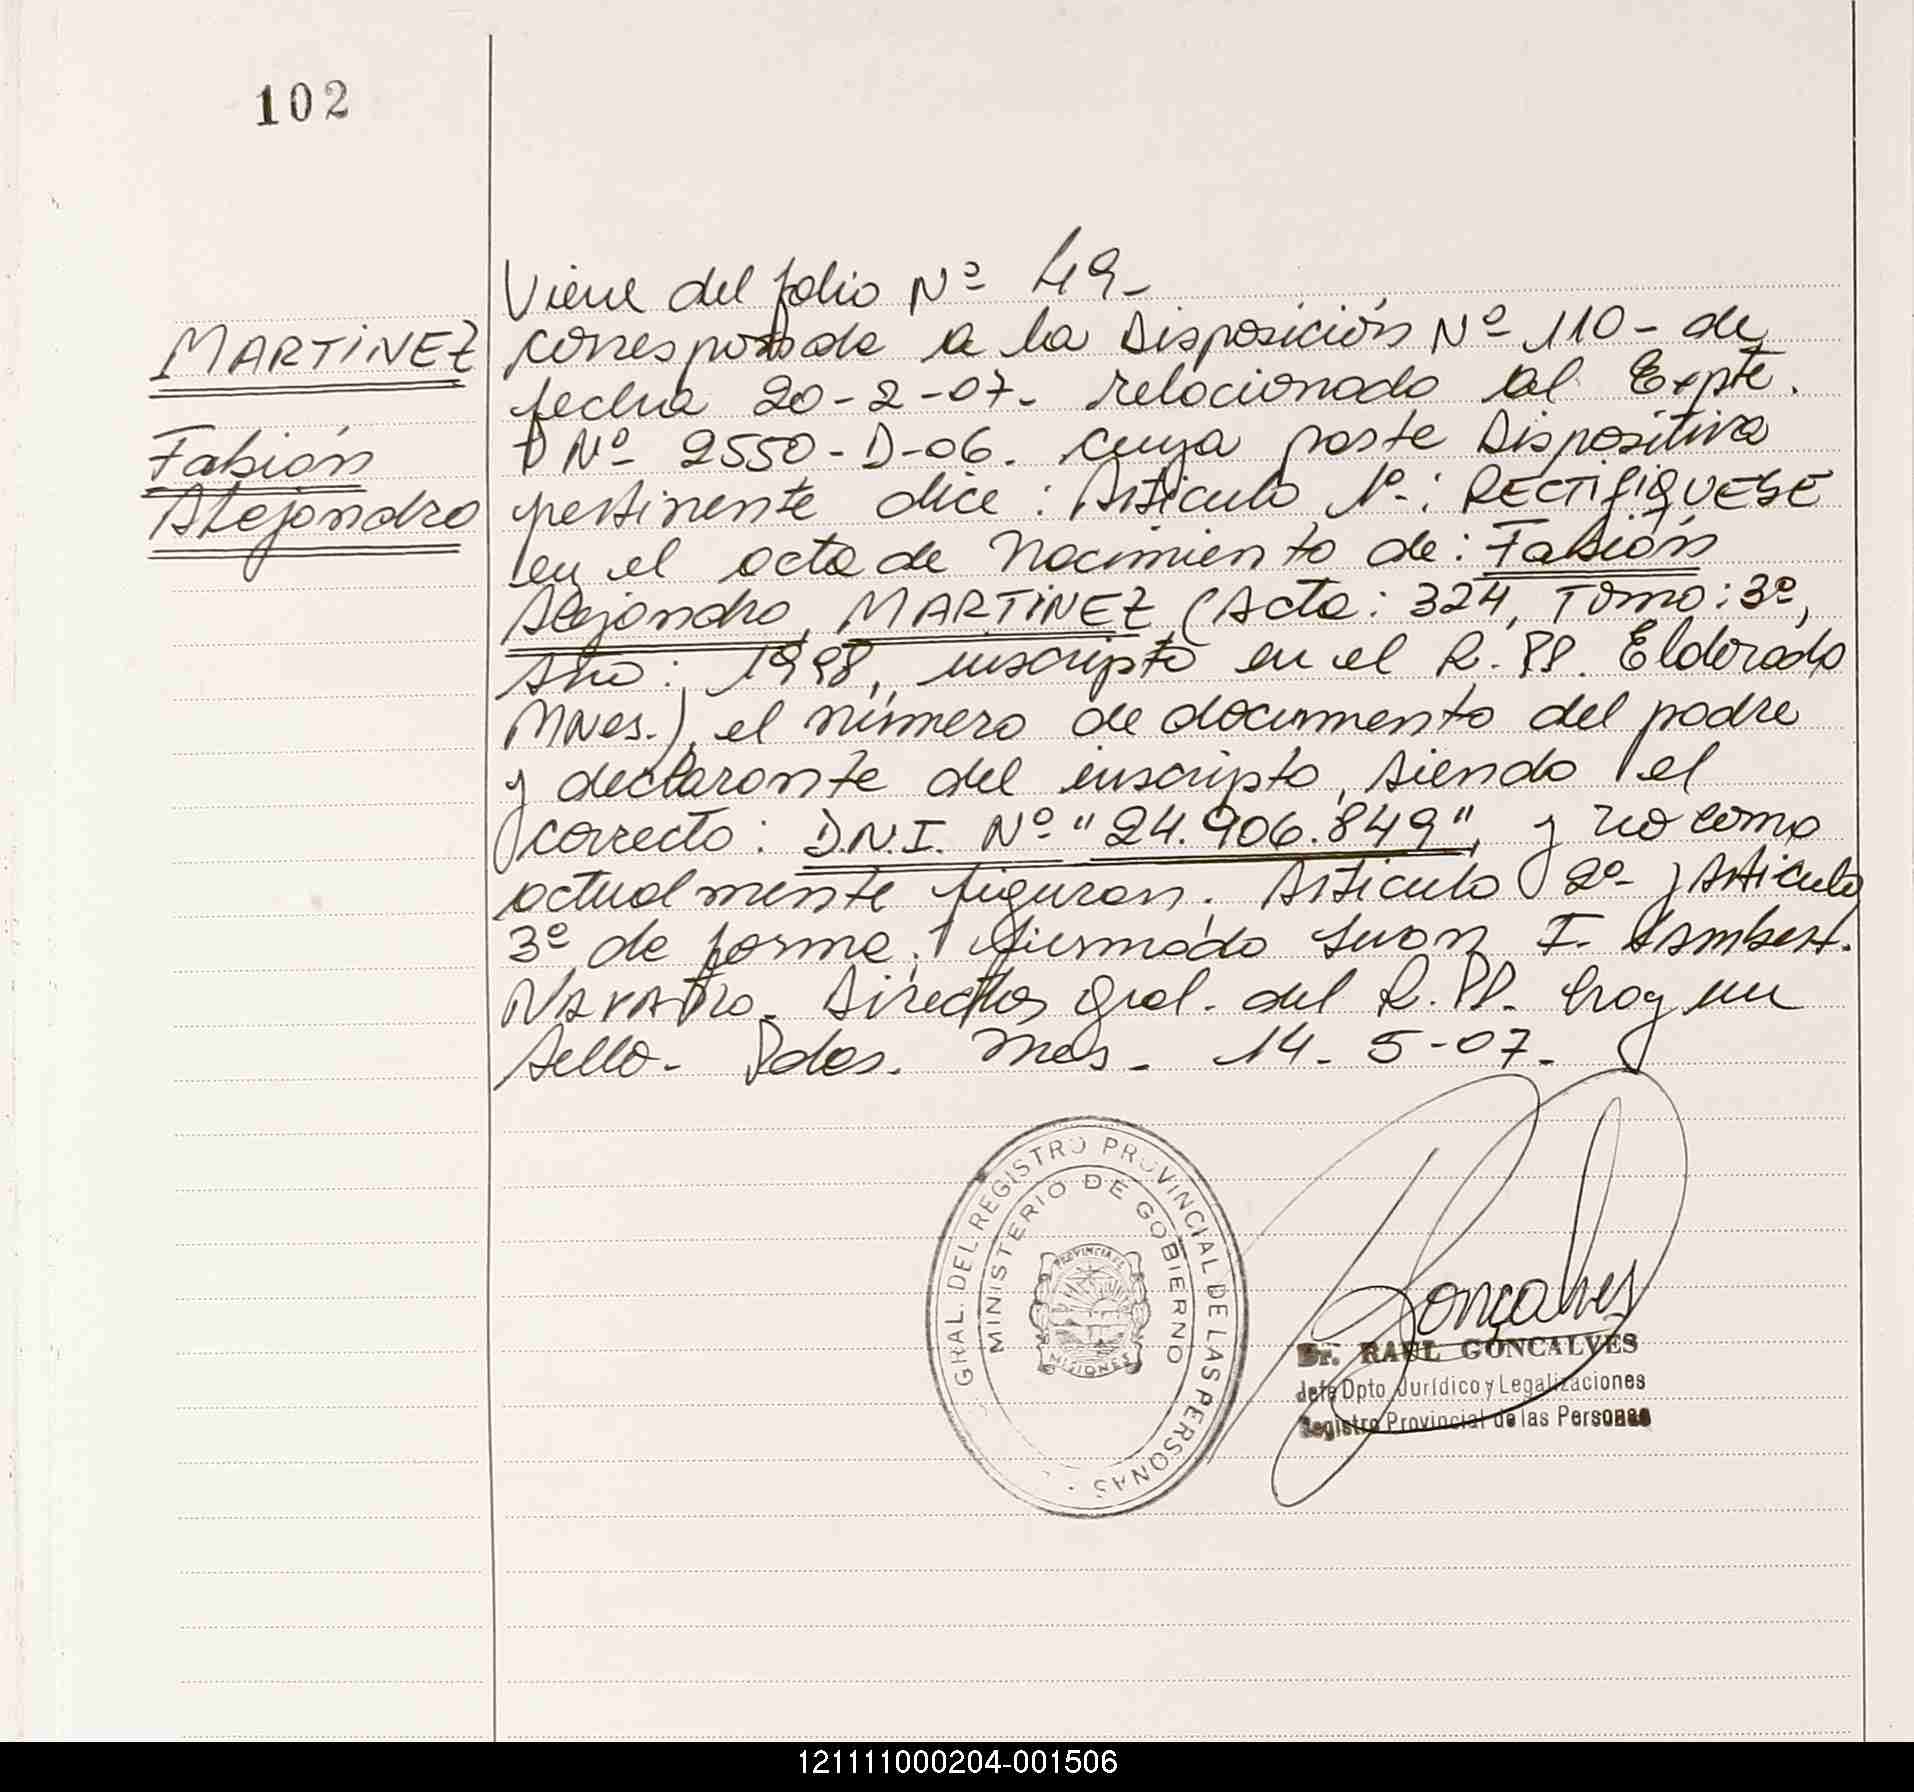 102
Viene del folio Nº 49-
MARTINEZ
Fabián
Alejandro
corresponde a la Disposición Nº 110- de
fecha 20-2-07- relacionado al Expte.
Nº 2550-D-06. cuya parte Dispositiva
pertinente dice: Artículo 1º-: RECTIFIQUESE
en el acta de Nacimiento de: Fabián
Alejandro MARTINEZ (Acta: 324, Tomo: 3º,
Año: 1998, inscripto en el R. PP. Eldorado
Mnes.), el número de documento del padre
y declarante del inscripto, siendo el
correcto: D.N.I. Nº "24.906.849", y no como
actualmente figuran. Artículo 2º- y Artículo
3º de forma. firmado Juan I. Lambert.
Navarro. Director Gral. del R.PP. hay un
sello- Pdas. Mnes- 14-5-07-
GRAL. DEL REGISTRO PROVINCIAL DE LAS PERSONAS
MINISTERIO DE GOBIERNO
PROVINCIA DE
MISIONES
Goncalves
Dr. RAUL GONCALVES
Jefe Dpto Jurídico y Legalizaciones
Registro Provincial de las Personas
121111000204-001506